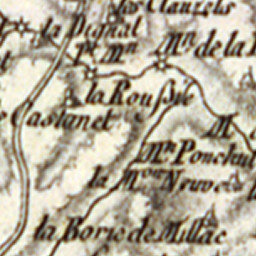 les Clauzels
la Dignal
Pt. Mn.
Mn. de la
la Roussie
Castanet
M
Mn. Ponchut
la Mon. Neuve
la Borie de Millac